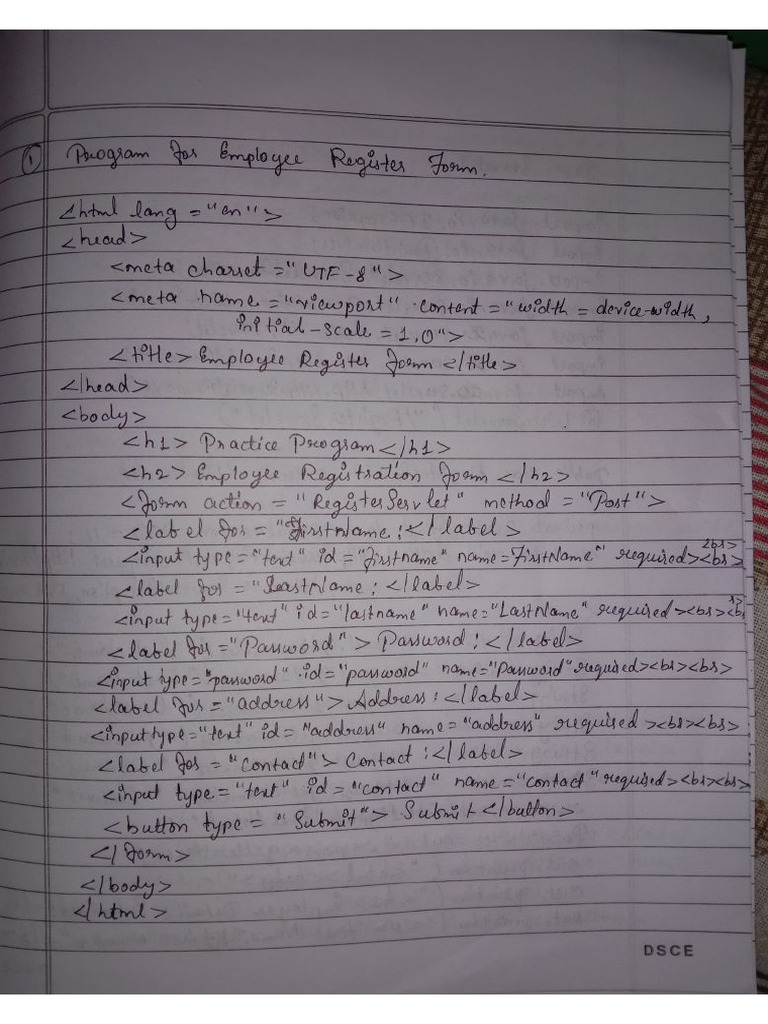 ① Program for Employee Register Form.
<html lang = "en">
<head>
<meta charset = "UTF-8">
<meta name = "viewport" content = "width = device-width,
initial-scale = 1.0">
<title> Employee Register Form </title>
</head>
<body>
<h1> Practice Program </h1>
<h2> Employee Registration Form </h2>
<form action = "RegisterServlet" method = "Post">
<label for = "FirstName :</label>
<input type = "text" id = "firstname" name = FirstName" required><br><br>
<label for = "LastName : </label>
<input type = "text" id = "lastname" name = "LastName" required><br><br>
<label for = "Password" > Password : </label>
<input type = "password" id = "password" name = "Password" required><br><br>
<label for = "address" > Address : </label>
<input type = "text" id = "address" name = "address" required ><br><br>
<label for = "contact" > Contact : </label>
<input type = "text" id = "contact" name = "contact" required><br><br>
<button type = "Submit" > Submit </button>
</form>
</body>
</html>
DSCE